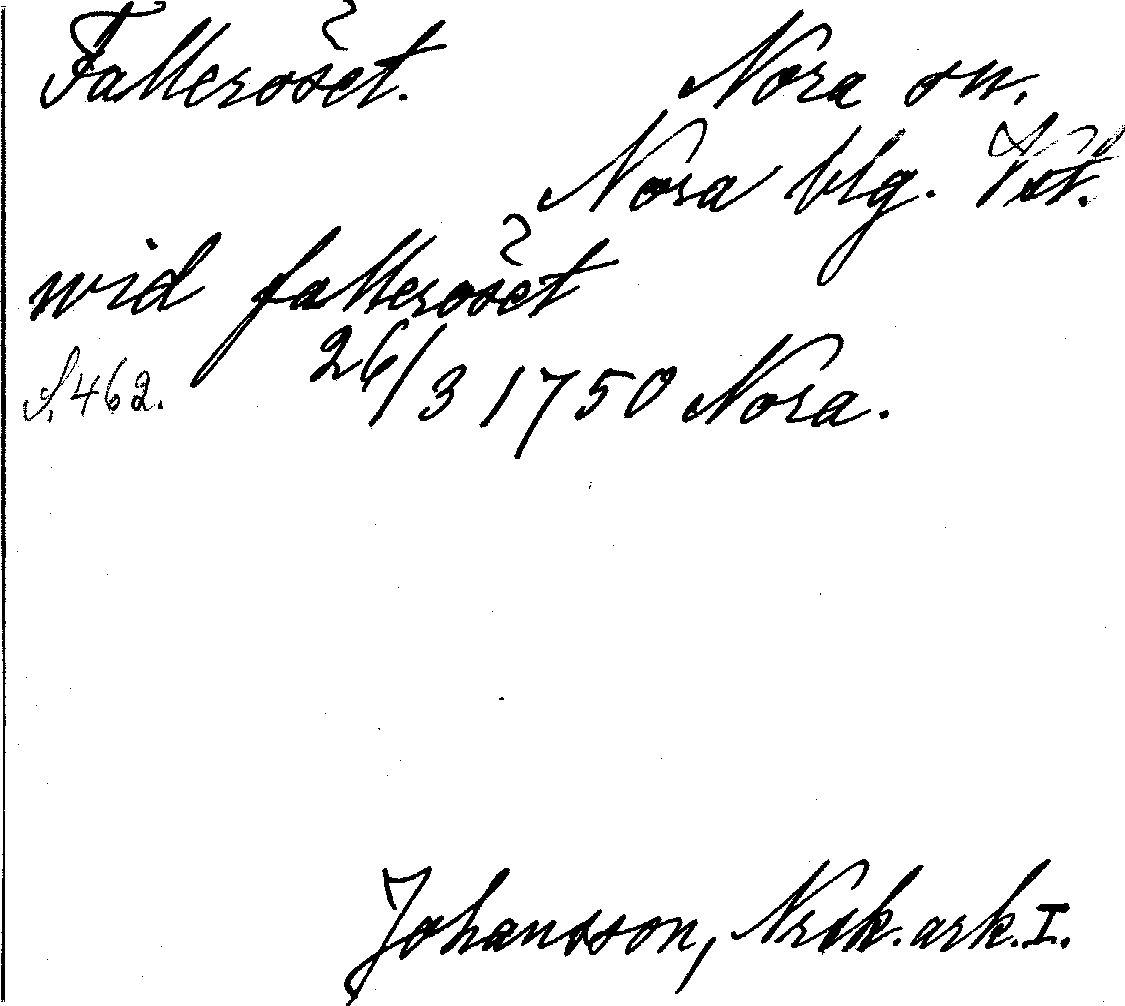 Falleröset. Nora sn.
Nora blg. Vst.
wid falleröset
S. 462. 26/3 1750 Nora.
Johansson, Nrsk. ark. I.